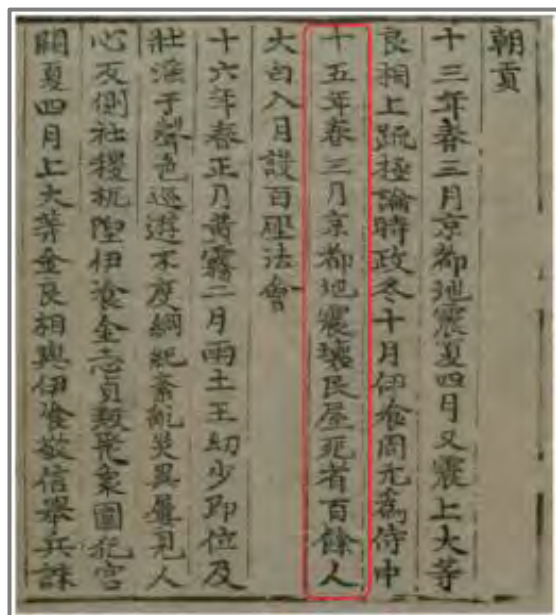 朝貢
十三年春三月京都地震夏四月又震上大等
良相上疏極論時政冬十月伊飡周元爲侍中
十五年春三月京都地震壞民屋死者百餘人
大白入月設百座法會
十六年春正月黄霧二月雨土王幼少即位及
壯淫于聲色巡遊不度綱紀紊亂災異屢見人
心反側社稷杌隉伊飡金志貞叛聚衆圍犯宮
闕夏四月上大等金良相與伊飡敬信舉兵誅